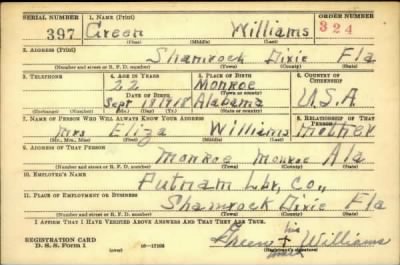 SERIAL NUMBER 1. NAME (Print) ORDER NUMBER
397 Green Williams 324
(First) (Middle) (Last)
2. ADDRESS (Print)
Shamrock Dixie Fla
(Number and street or R. F. D. number) (Town) (County) (State)
3. TELEPHONE 4. AGE IN YEARS 5. PLACE OF BIRTH 6. COUNTRY OF CITIZENSHIP
22 Monroe
DATE OF BIRTH (Town or county)
Sept 1918 Alabama U.S.A
(Exchange) (Number) (Mo.) (Day) (Yr.) (State or country)
7. NAME OF PERSON WHO WILL ALWAYS KNOW YOUR ADDRESS 8. RELATIONSHIP OF THAT PERSON
Mrs Eliza Williams Mother
(Mr., Mrs., Miss) (First) (Middle) (Last)
9. ADDRESS OF THAT PERSON
Monroe Monroe Ala
(Number and street or R. F. D. number) (Town) (County) (State)
10. EMPLOYER'S NAME
Putnam Lbr, Co.,
11. PLACE OF EMPLOYMENT OR BUSINESS
Shamrock Dixie Fla
(Number and street or R. F. D. number) (Town) (County) (State)
I AFFIRM THAT I HAVE VERIFIED ABOVE ANSWERS AND THAT THEY ARE TRUE.
REGISTRATION CARD his
D. S. S. Form 1 Green + Williams
(over) 16-17105 mark